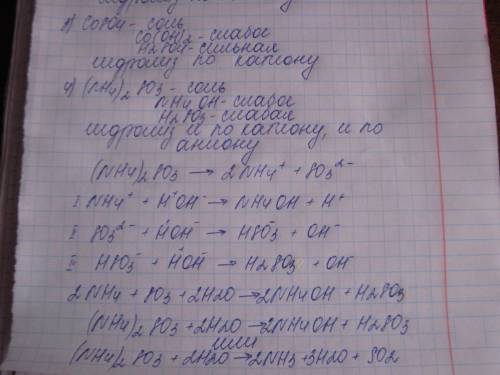 3) CoSO4 - соль
Co(OH)2 - слабое
H2SO4 - сильная
гидролиз по катиону
4) (NH4)2 SO3 - соль
NH4OH - слабое
H2SO3 - слабая
гидролиз и по катиону, и по
аниону
(NH4)2SO3 → 2NH4+ + SO3 2-
I NH4+ + H+OH- → NH4OH + H+
II SO3 2- + H+OH- → HSO3- + OH-
III HSO3- + H+OH- → H2SO3 + OH-
2NH4 + SO3 + 2H2O → 2NH4OH + H2SO3
(NH4)2SO3 + 2H2O → 2NH4OH + H2SO3
или
(NH4)2SO3 + 2H2O → 2NH3 + 3H2O + SO2